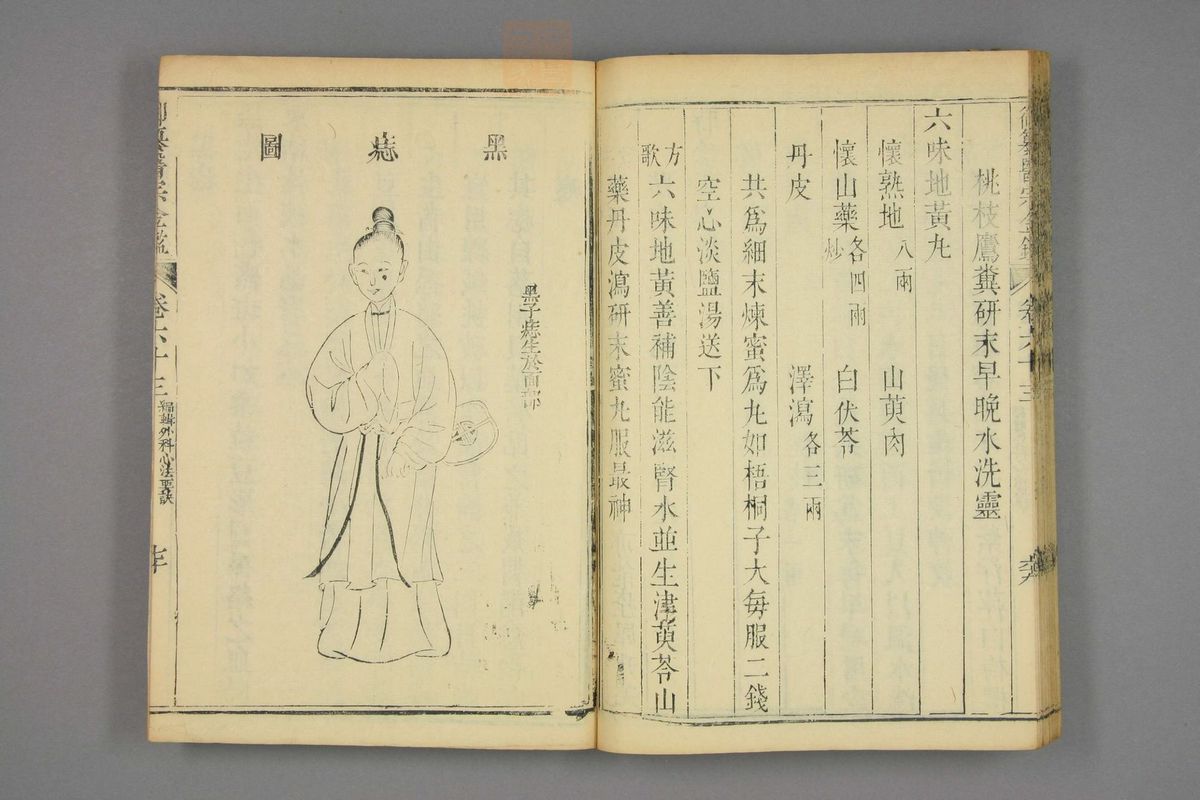 桃枝鷹糞研末早晚水洗靈
六味地黃丸
懷熟地八兩 山萸肉
懷山藥炒各四兩 白伏苓
丹皮 澤瀉各三兩
共爲細末煉蜜爲丸如梧桐子大每服二錢
空心淡鹽湯送下
方歌 六味地黃善補陰能滋腎水並生津萸苓山
藥丹皮瀉研末蜜丸服最神
卷六十三
黑痣圖
黑子痣生於面部
御纂醫宗金鑑 卷六十三 編輯外科心法要訣